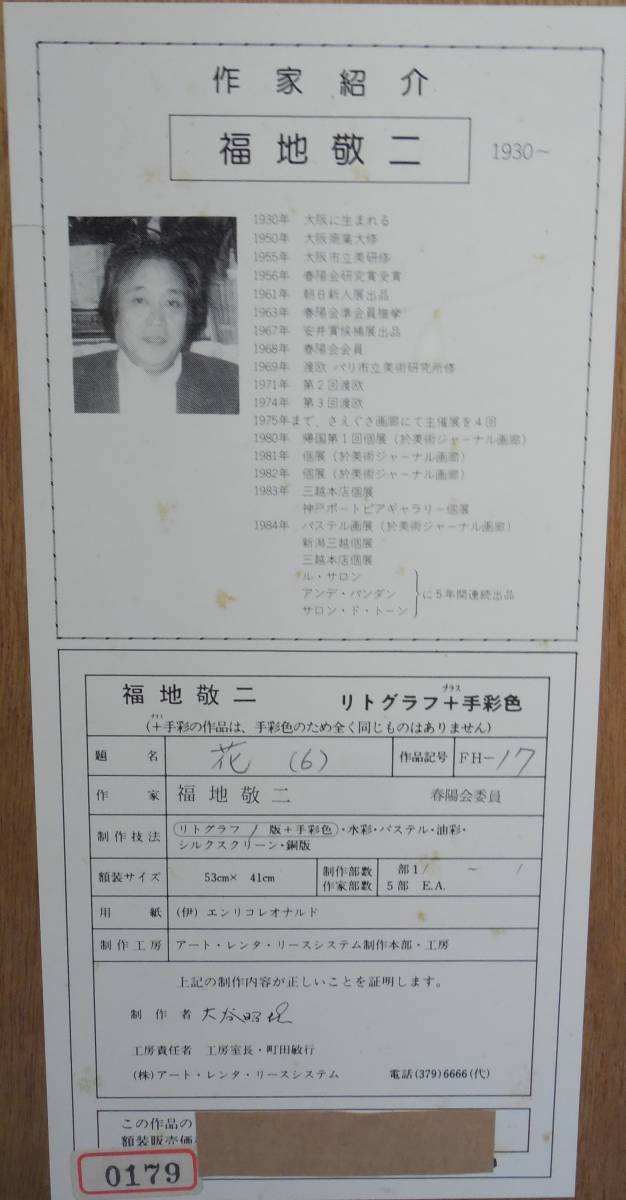 作家紹介
福地敬二 1930〜
1930年 大阪に生まれる
1950年 大阪商業大修
1955年 大阪市立美研修
1956年 春陽会研究賞受賞
1961年 朝日新人展出品
1963年 春陽会準会員推挙
1967年 安井賞候補展出品
1968年 春陽会会員
1969年 渡欧 パリ市立美術研究所修
1971年 第2回渡欧
1974年 第3回渡欧
1975年まで、さえぐさ画廊にて主催展を4回
1980年 帰国第1回個展(於美術ジャーナル画廊)
1981年 個展(於美術ジャーナル画廊)
1982年 個展(於美術ジャーナル画廊)
1983年 三越本店個展
神戸ポートピアギャラリー個展
1984年 パステル画展(於美術ジャーナル画廊)
新潟三越個展
三越本店個展
ル・サロン
アンデ・パンダン に5年間連続出品
サロン・ド・トーン
福地敬二 リトグラフ+手彩色
プラス
(+手彩の作品は、手彩色のため全く同じものはありません)
題名 花 (6) 作品記号 FH-17
作家 福地敬二 春陽会委員
制作技法 (リトグラフ / 版+手彩色)・水彩・パステル・油彩・
シルクスクリーン・銅版
額装サイズ 53cm× 41cm 制作部数 部1/ 〜 /
作家部数 5部 E.A.
用紙 (伊) エンリコレオナルド
制作工房 アート・レンタ・リースシステム制作本部・工房
上記の制作内容が正しいことを証明します。
制作者
工房責任者 工房室長・町田敏行
(株)アート・レンタ・リースシステム 電話(379)6666(代)
この作品の
額装販売価
0179